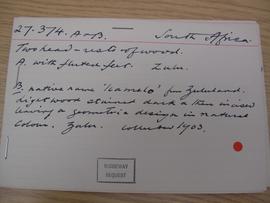 27.374. A-B. South Africa.
Two head-rests of wood.
A. with fluted feet. Zulu.
B. native name 'kamelo' from Zululand.
wood stained dark & then incised
leaving a geometric design in natural
colour. Zulu. Collected 1903.
RIDGEWAY
BEQUEST